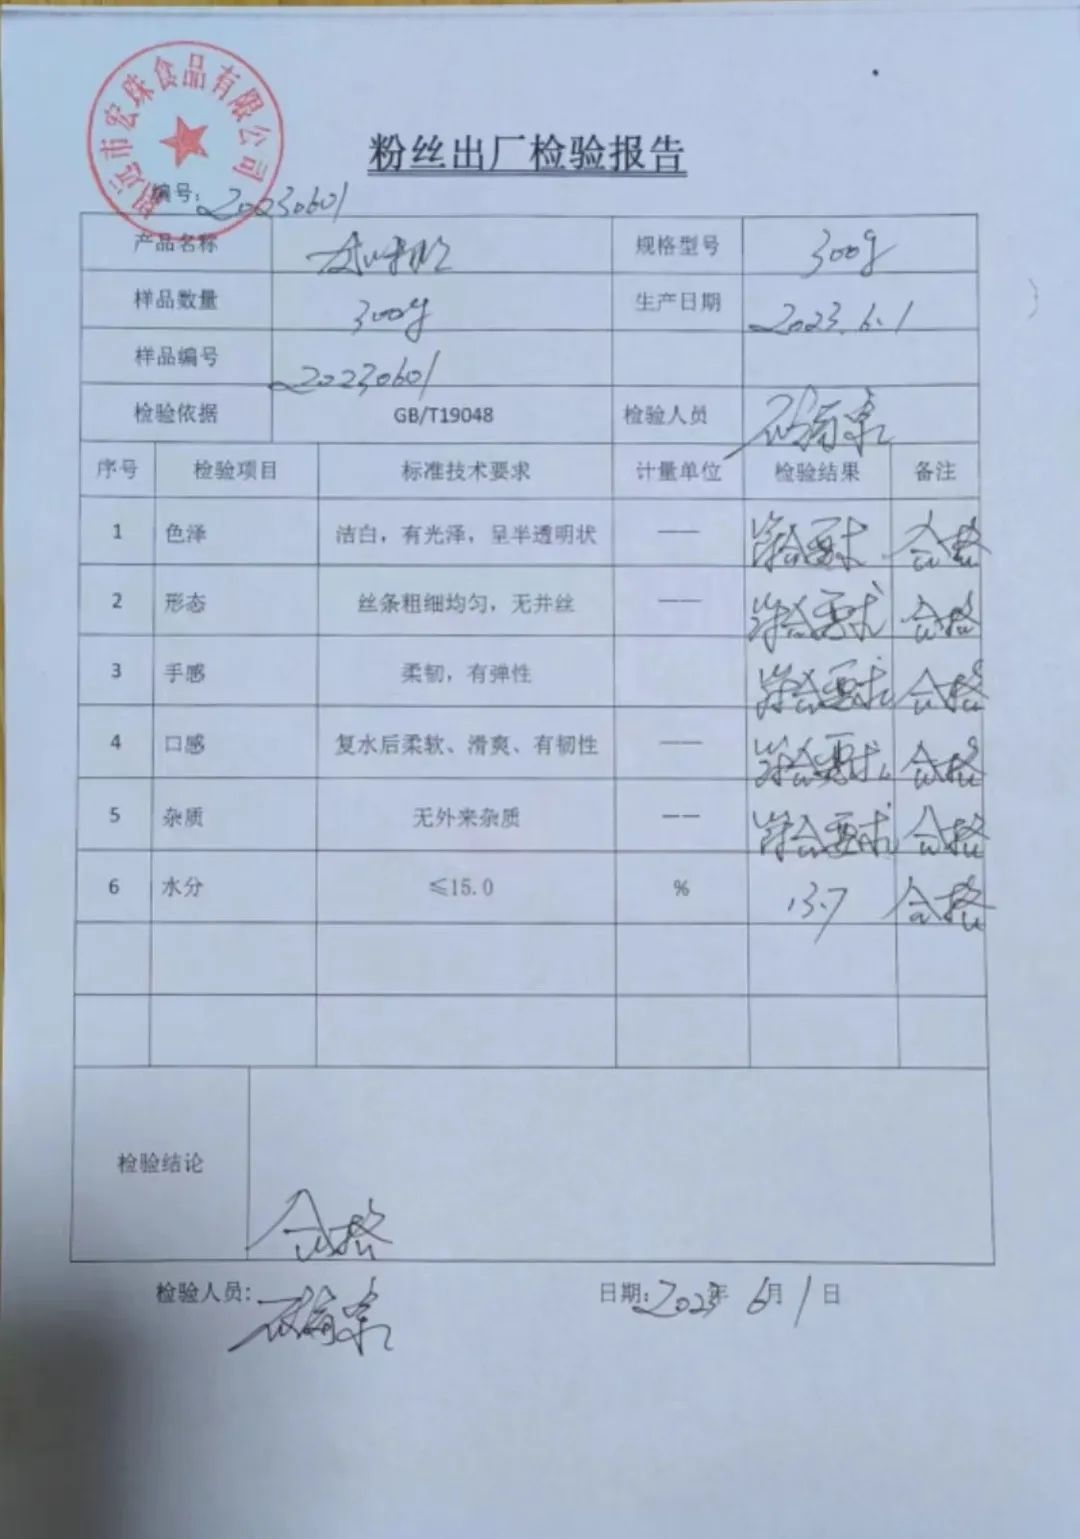 招远市宏珠食品有限公司
粉丝出厂检验报告
编号: 20230601
产品名称 规格型号 300g
样品数量 300g 生产日期 2023.6.1
样品编号 20230601
检验依据 GB/T19048 检验人员
序号 检验项目 标准技术要求 计量单位 检验结果 备注
1 色泽 洁白，有光泽，呈半透明状 —— 符合要求 合格
2 形态 丝条粗细均匀，无并丝 —— 符合要求 合格
3 手感 柔韧，有弹性 符合要求 合格
4 口感 复水后柔软、滑爽、有韧性 —— 符合要求 合格
5 杂质 无外来杂质 —— 符合要求 合格
6 水分 ≤15.0 % 13.7 合格
检验结论 合格
检验人员: 日期: 2023年 6月1日